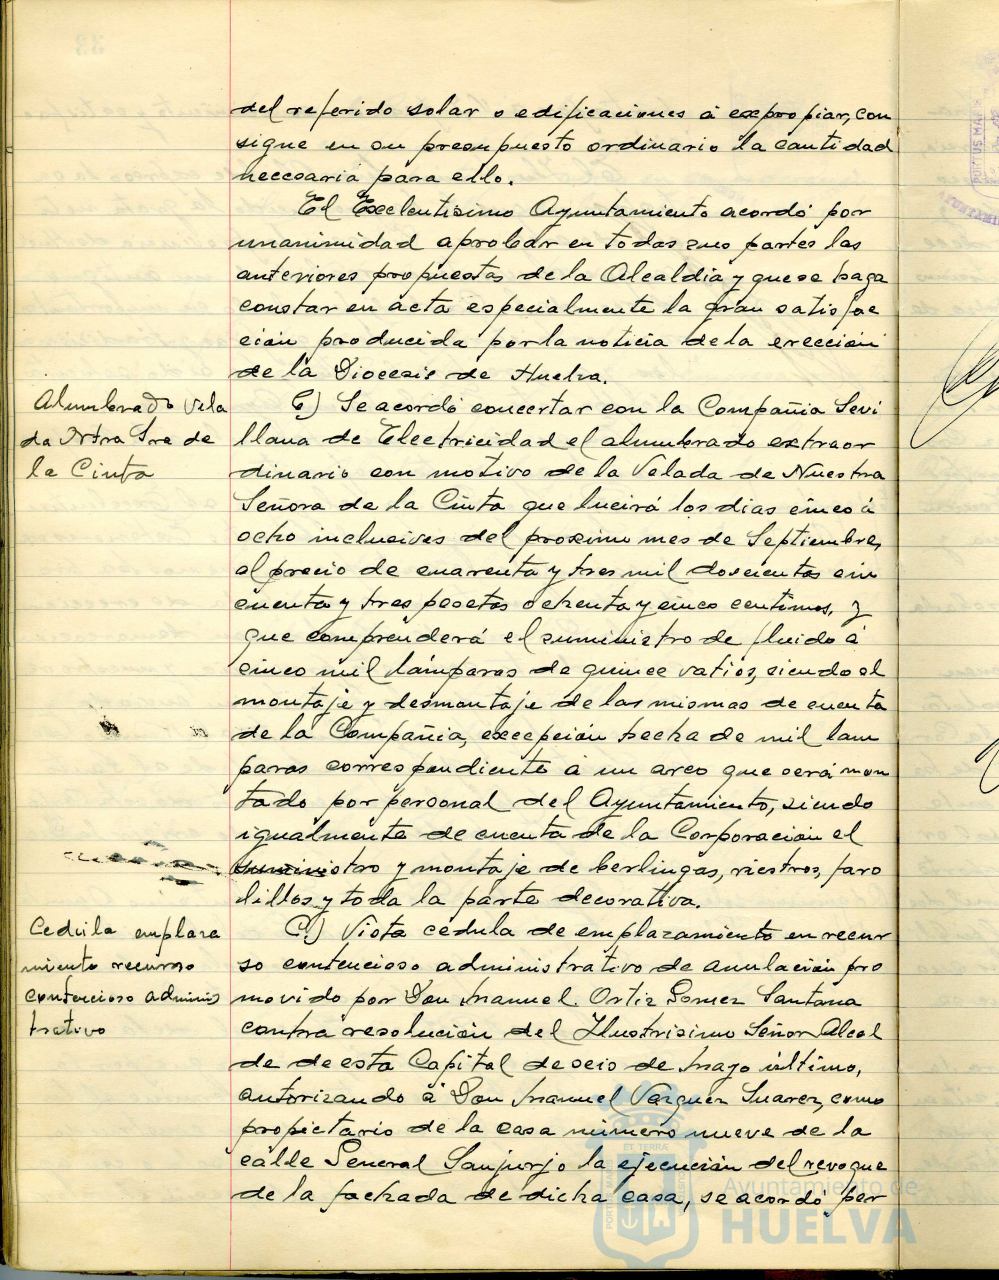 del referido solar o edificaciones á expropiar, con
signe en su presupuesto ordinario la cantidad
necesaria para ello.
El Excelentisimo Ayuntamiento acordó por
unanimidad aprobar en todas sus partes las
anteriores propuestas de la Alcaldia y que se haga
constar en acta especialmente la gran satisfac
ción producida por la noticia de la erección
de la Diocesis de Huelva.
Alumbrado Vela
da Ntra Sra de
la Cinta
Se acordó concertar con la Compañia Sevi
llana de Electricidad el alumbrado extraor
dinario con motivo de la Velada de Nuestra
Señora de la Cinta que lucirá los dias cinco á
ocho inclusives del proximo mes de Septiembre,
al precio de cuarenta y tres mil doscientas cin
cuenta y tres pesetas ochenta y cinco centimos, y
que comprenderá el suministro de fluido á
cinco mil lámparas de quince vatios, siendo el
montaje y desmontaje de las mismas de cuenta
de la Compañia, excepción hecha de mil lam
paras correspondiente á un arco que será mon
tado por personal del Ayuntamiento, siendo
igualmente de cuenta de la Corporación el
suministro y montaje de berlingas, riestros, faro
lillos y toda la parte decorativa.
Cedula emplaza
miento recurso
contencioso adminis
trativo
C.) Vista cédula de emplazamiento en recur
so contencioso administrativo de anulación pro
movido por Don Manuel Ortiz Gomez Santana
contra resolución del Ilustrisimo Señor Alcal
de de esta Capital de seis de Mayo último,
autorizando á Don Manuel Vazquez Suarez, como
propietario de la casa número nueve de la
calle General Sanjurjo la ejecución del revoque
de la fachada de dicha casa, se acordó por
Ayuntamiento de
HUELVA